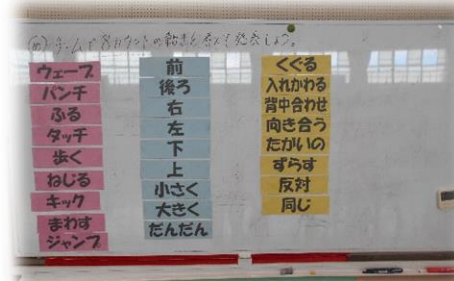 (め)チームで8カウントの動きを考えて発表しよう。
ウェーブ
パンチ
ふる
タッチ
歩く
ねじる
キック
まわす
ジャンプ
前
後ろ
右
左
下
上
小さく
大きく
だんだん
くぐる
入れかわる
背中合わせ
向き合う
たがいの
ずらす
反対
同じ